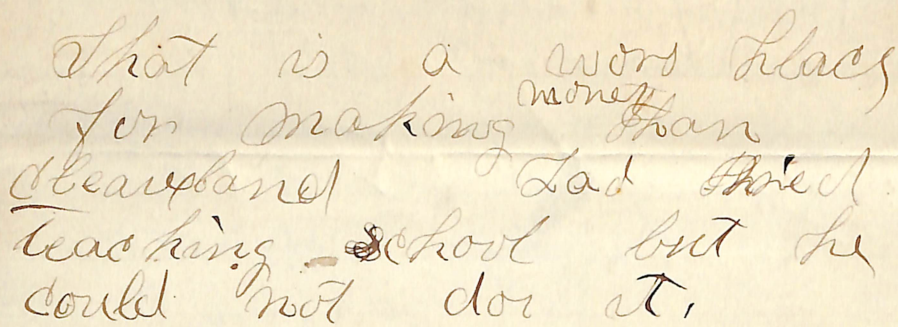 That is a wors place
for making money than
Cleaveland Zad thried
teaching school but he
could not doi it.